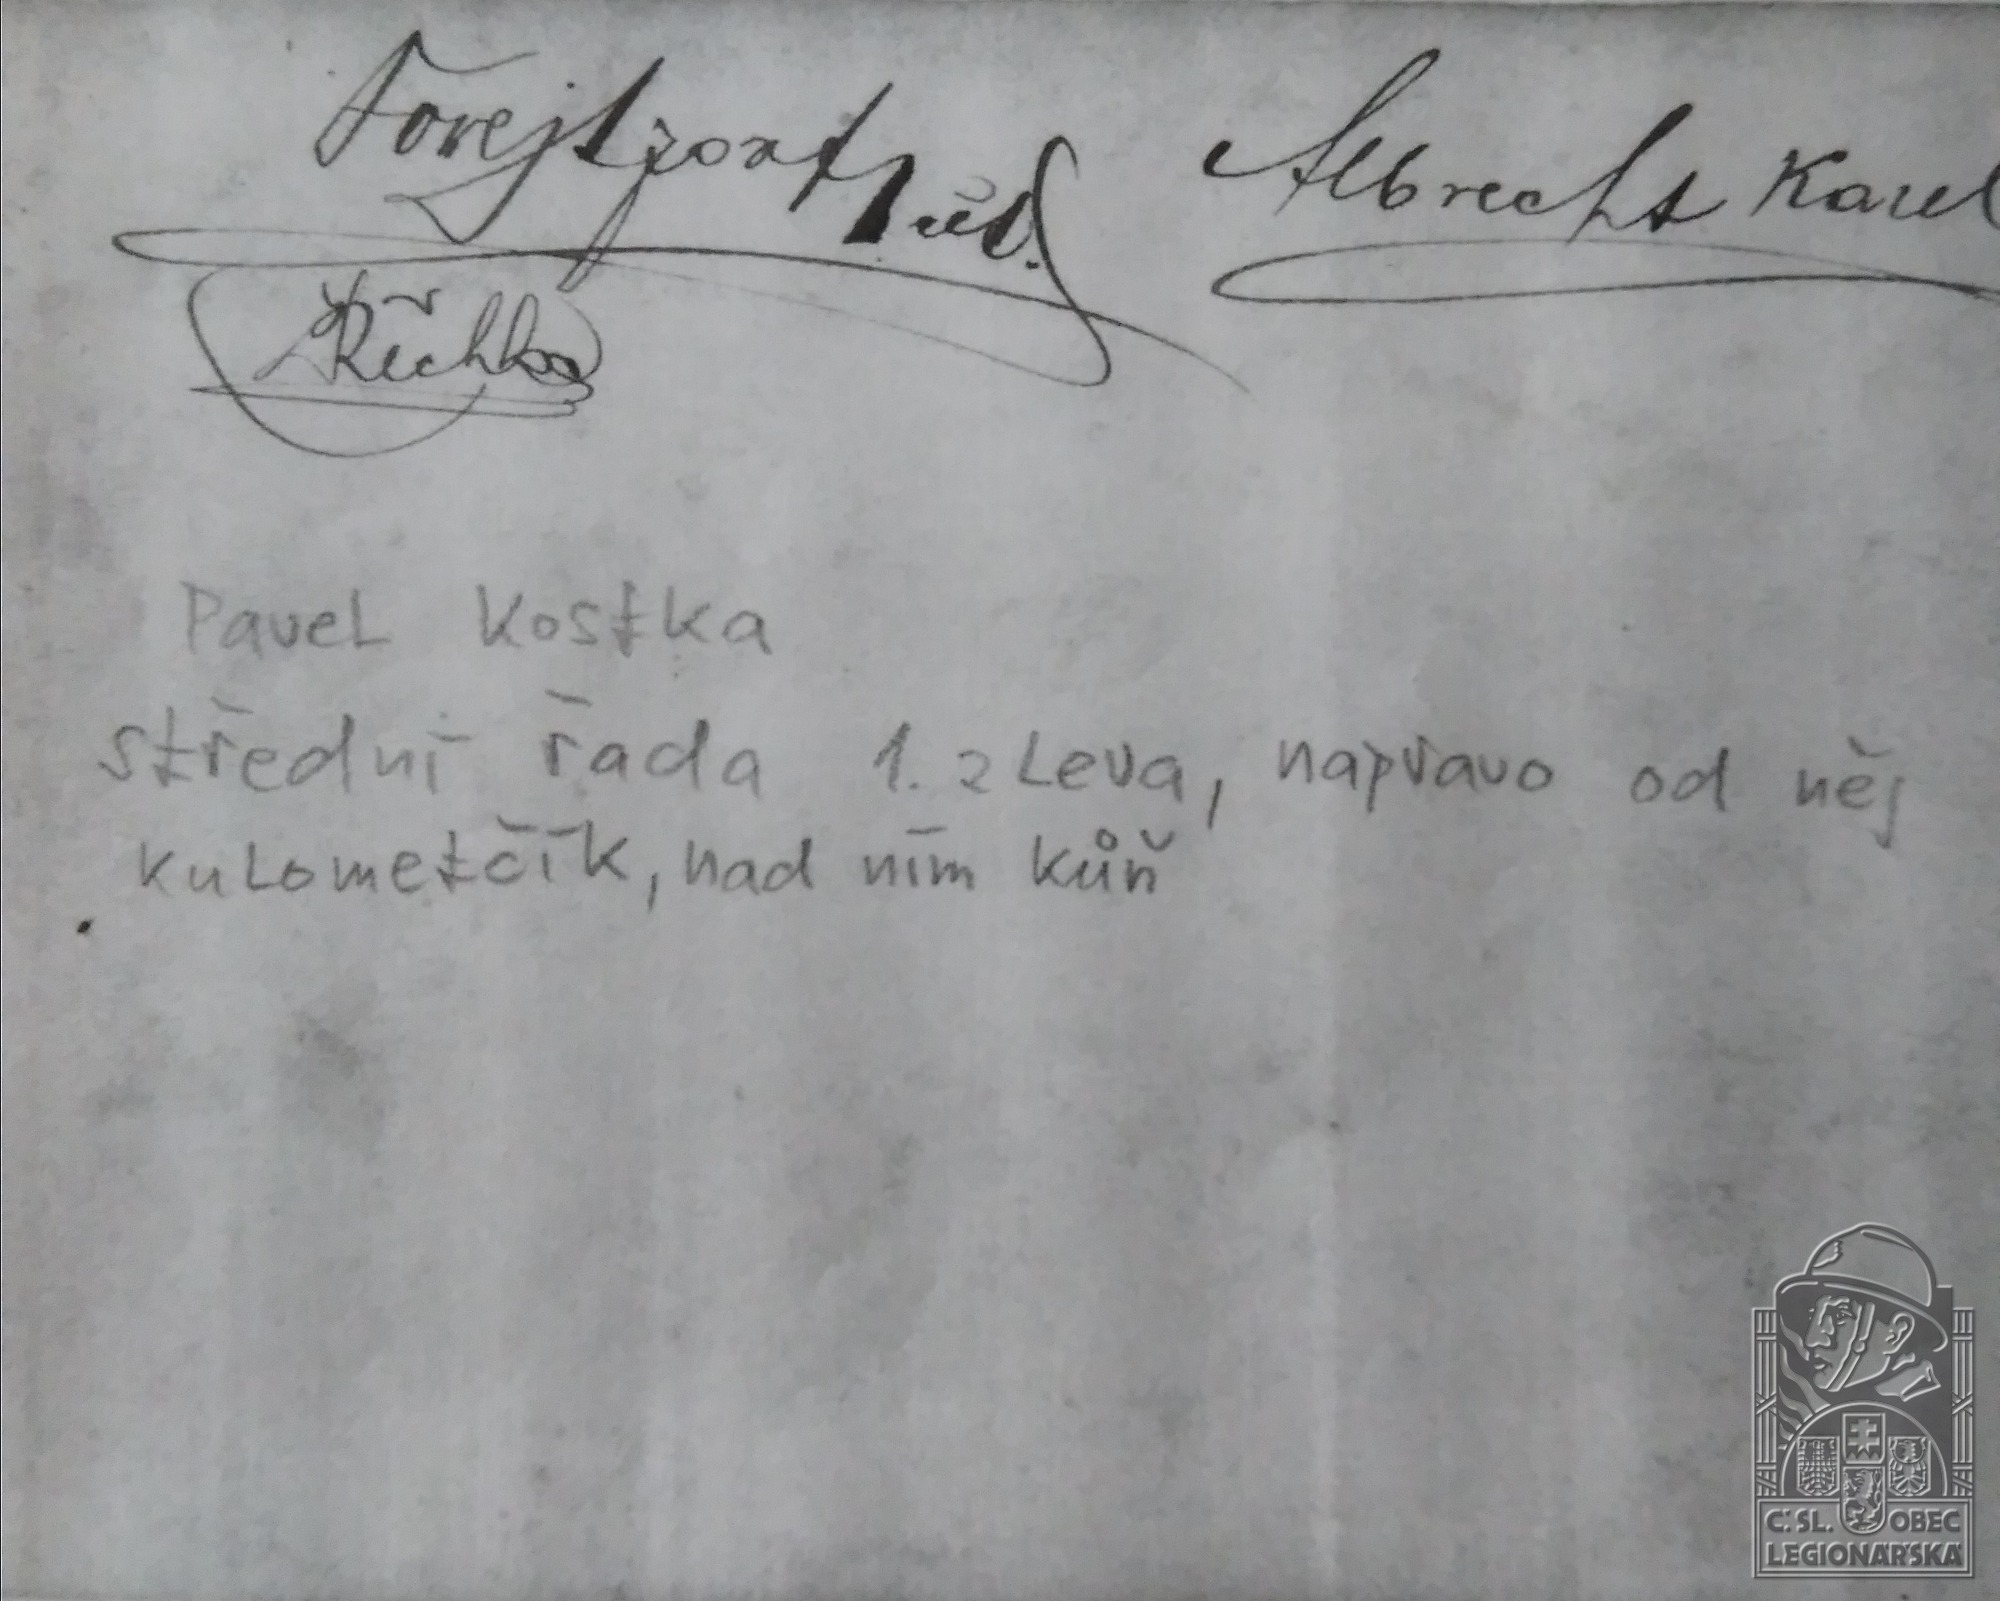 Albrecht Karel
Řička
Pavel Kostka
střední řada 1. zleva, napravo od něj
kulometčík, nad ním kůň
Č.SL. OBEC
LEGIONÁŘSKÁ